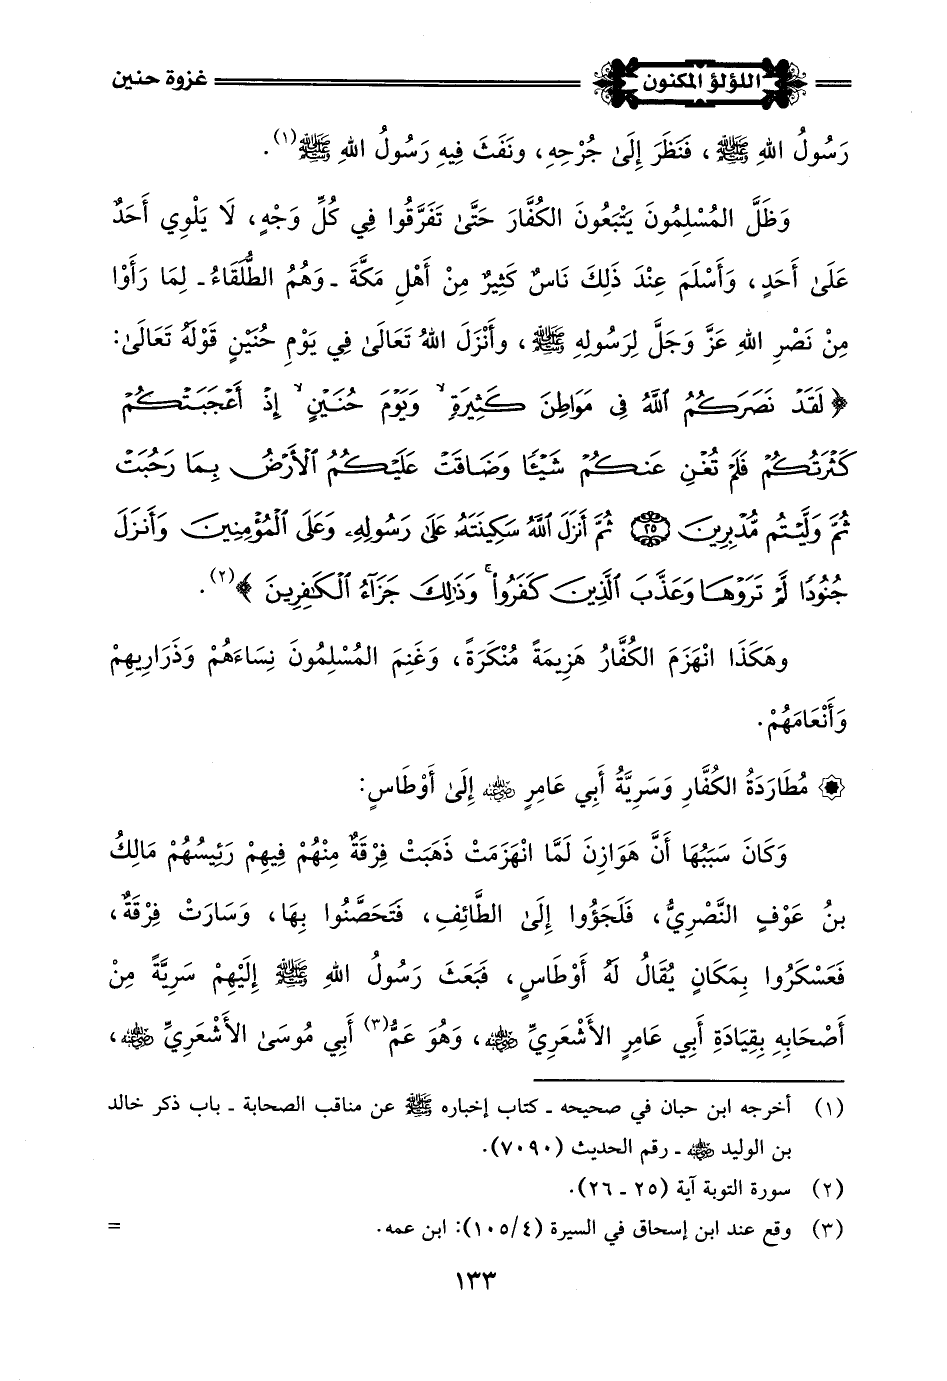 اللؤلؤ المكنون
غزوة حنين
رَسُولُ اللهِ ﷺ، فَنَظَرَ إِلَىٰ جُرْحِهِ، ونَفَثَ فِيهِ رَسُولُ اللهِ ﷺ(١).
وَظَلَّ المُسْلِمُونَ يَتْبَعُونَ الكُفَّارَ حَتَّىٰ تَفَرَّقُوا فِي كُلِّ وَجْهٍ، لَا يَلْوِي أَحَدٌ
عَلَىٰ أَحَدٍ، وَأَسْلَمَ عِنْدَ ذَلِكَ نَاسٌ كَثِيرٌ مِنْ أَهْلِ مَكَّةَ ـ وَهُمُ الطُّلَقَاءُ ـ لِمَا رَأَوْا
مِنْ نَصْرِ اللهِ عَزَّ وَجَلَّ لِرَسُولِهِ ﷺ، وأَنْزَلَ اللهُ تَعَالَىٰ فِي يَوْمِ حُنَيْنٍ قَوْلَهُ تَعَالَىٰ:
﴿لَقَدْ نَصَرَكُمُ ٱللَّهُ فِى مَوَاطِنَ كَثِيرَةٍ ۙ وَيَوْمَ حُنَيْنٍ ۙ إِذْ أَعْجَبَتْكُمْ
كَثْرَتُكُمْ فَلَمْ تُغْنِ عَنكُمْ شَيْـًٔا وَضَاقَتْ عَلَيْكُمُ ٱلْأَرْضُ بِمَا رَحُبَتْ
ثُمَّ وَلَّيْتُم مُّدْبِرِينَ ٢٥ ثُمَّ أَنزَلَ ٱللَّهُ سَكِينَتَهُۥ عَلَىٰ رَسُولِهِۦ وَعَلَى ٱلْمُؤْمِنِينَ وَأَنزَلَ
جُنُودًا لَّمْ تَرَوْهَا وَعَذَّبَ ٱلَّذِينَ كَفَرُوا۟ ۚ وَذَٰلِكَ جَزَآءُ ٱلْكَٰفِرِينَ﴾(٢).
وهَكَذَا انْهَزَمَ الكُفَّارُ هَزِيمَةً مُنْكَرَةً، وَغَنِمَ المُسْلِمُونَ نِسَاءَهُمْ وَذَرَارِيهِمْ
وَأَنْعَامَهُمْ.
مُطَارَدَةُ الكُفَّارِ وَسَرِيَّةُ أَبِي عَامِرٍ رضي الله عنه إِلَىٰ أَوْطَاسٍ:
وَكَانَ سَبَبُهَا أَنَّ هَوَازِنَ لَمَّا انْهَزَمَتْ ذَهَبَتْ فِرْقَةٌ مِنْهُمْ فِيهِمْ رَئِيسُهُمْ مَالِكُ
بنُ عَوْفٍ النَّصْرِيُّ، فَلَجَؤُوا إِلَىٰ الطَّائِفِ، فَتَحَصَّنُوا بِهَا، وَسَارَتْ فِرْقَةٌ،
فَعَسْكَرُوا بِمَكَانٍ يُقَالُ لَهُ أَوْطَاسٍ، فَبَعَثَ رَسُولُ اللهِ ﷺ إِلَيْهِمْ سَرِيَّةً مِنْ
أَصْحَابِهِ بِقِيَادَةِ أَبِي عَامِرٍ الأَشْعَرِيِّ رضي الله عنه، وَهُوَ عَمُّ(٣) أَبِي مُوسَىٰ الأَشْعَرِيِّ رضي الله عنه،
(١) أخرجه ابن حبان في صحيحه ـ كتاب إخباره ﷺ عن مناقب الصحابة ـ باب ذكر خالد
بن الوليد رضي الله عنه ـ رقم الحديث (٧٠٩٠).
(٢) سورة التوبة آية (٢٥ ـ ٢٦).
(٣) وقع عند ابن إسحاق في السيرة (٤/١٠٥): ابن عمه. =
١٣٣